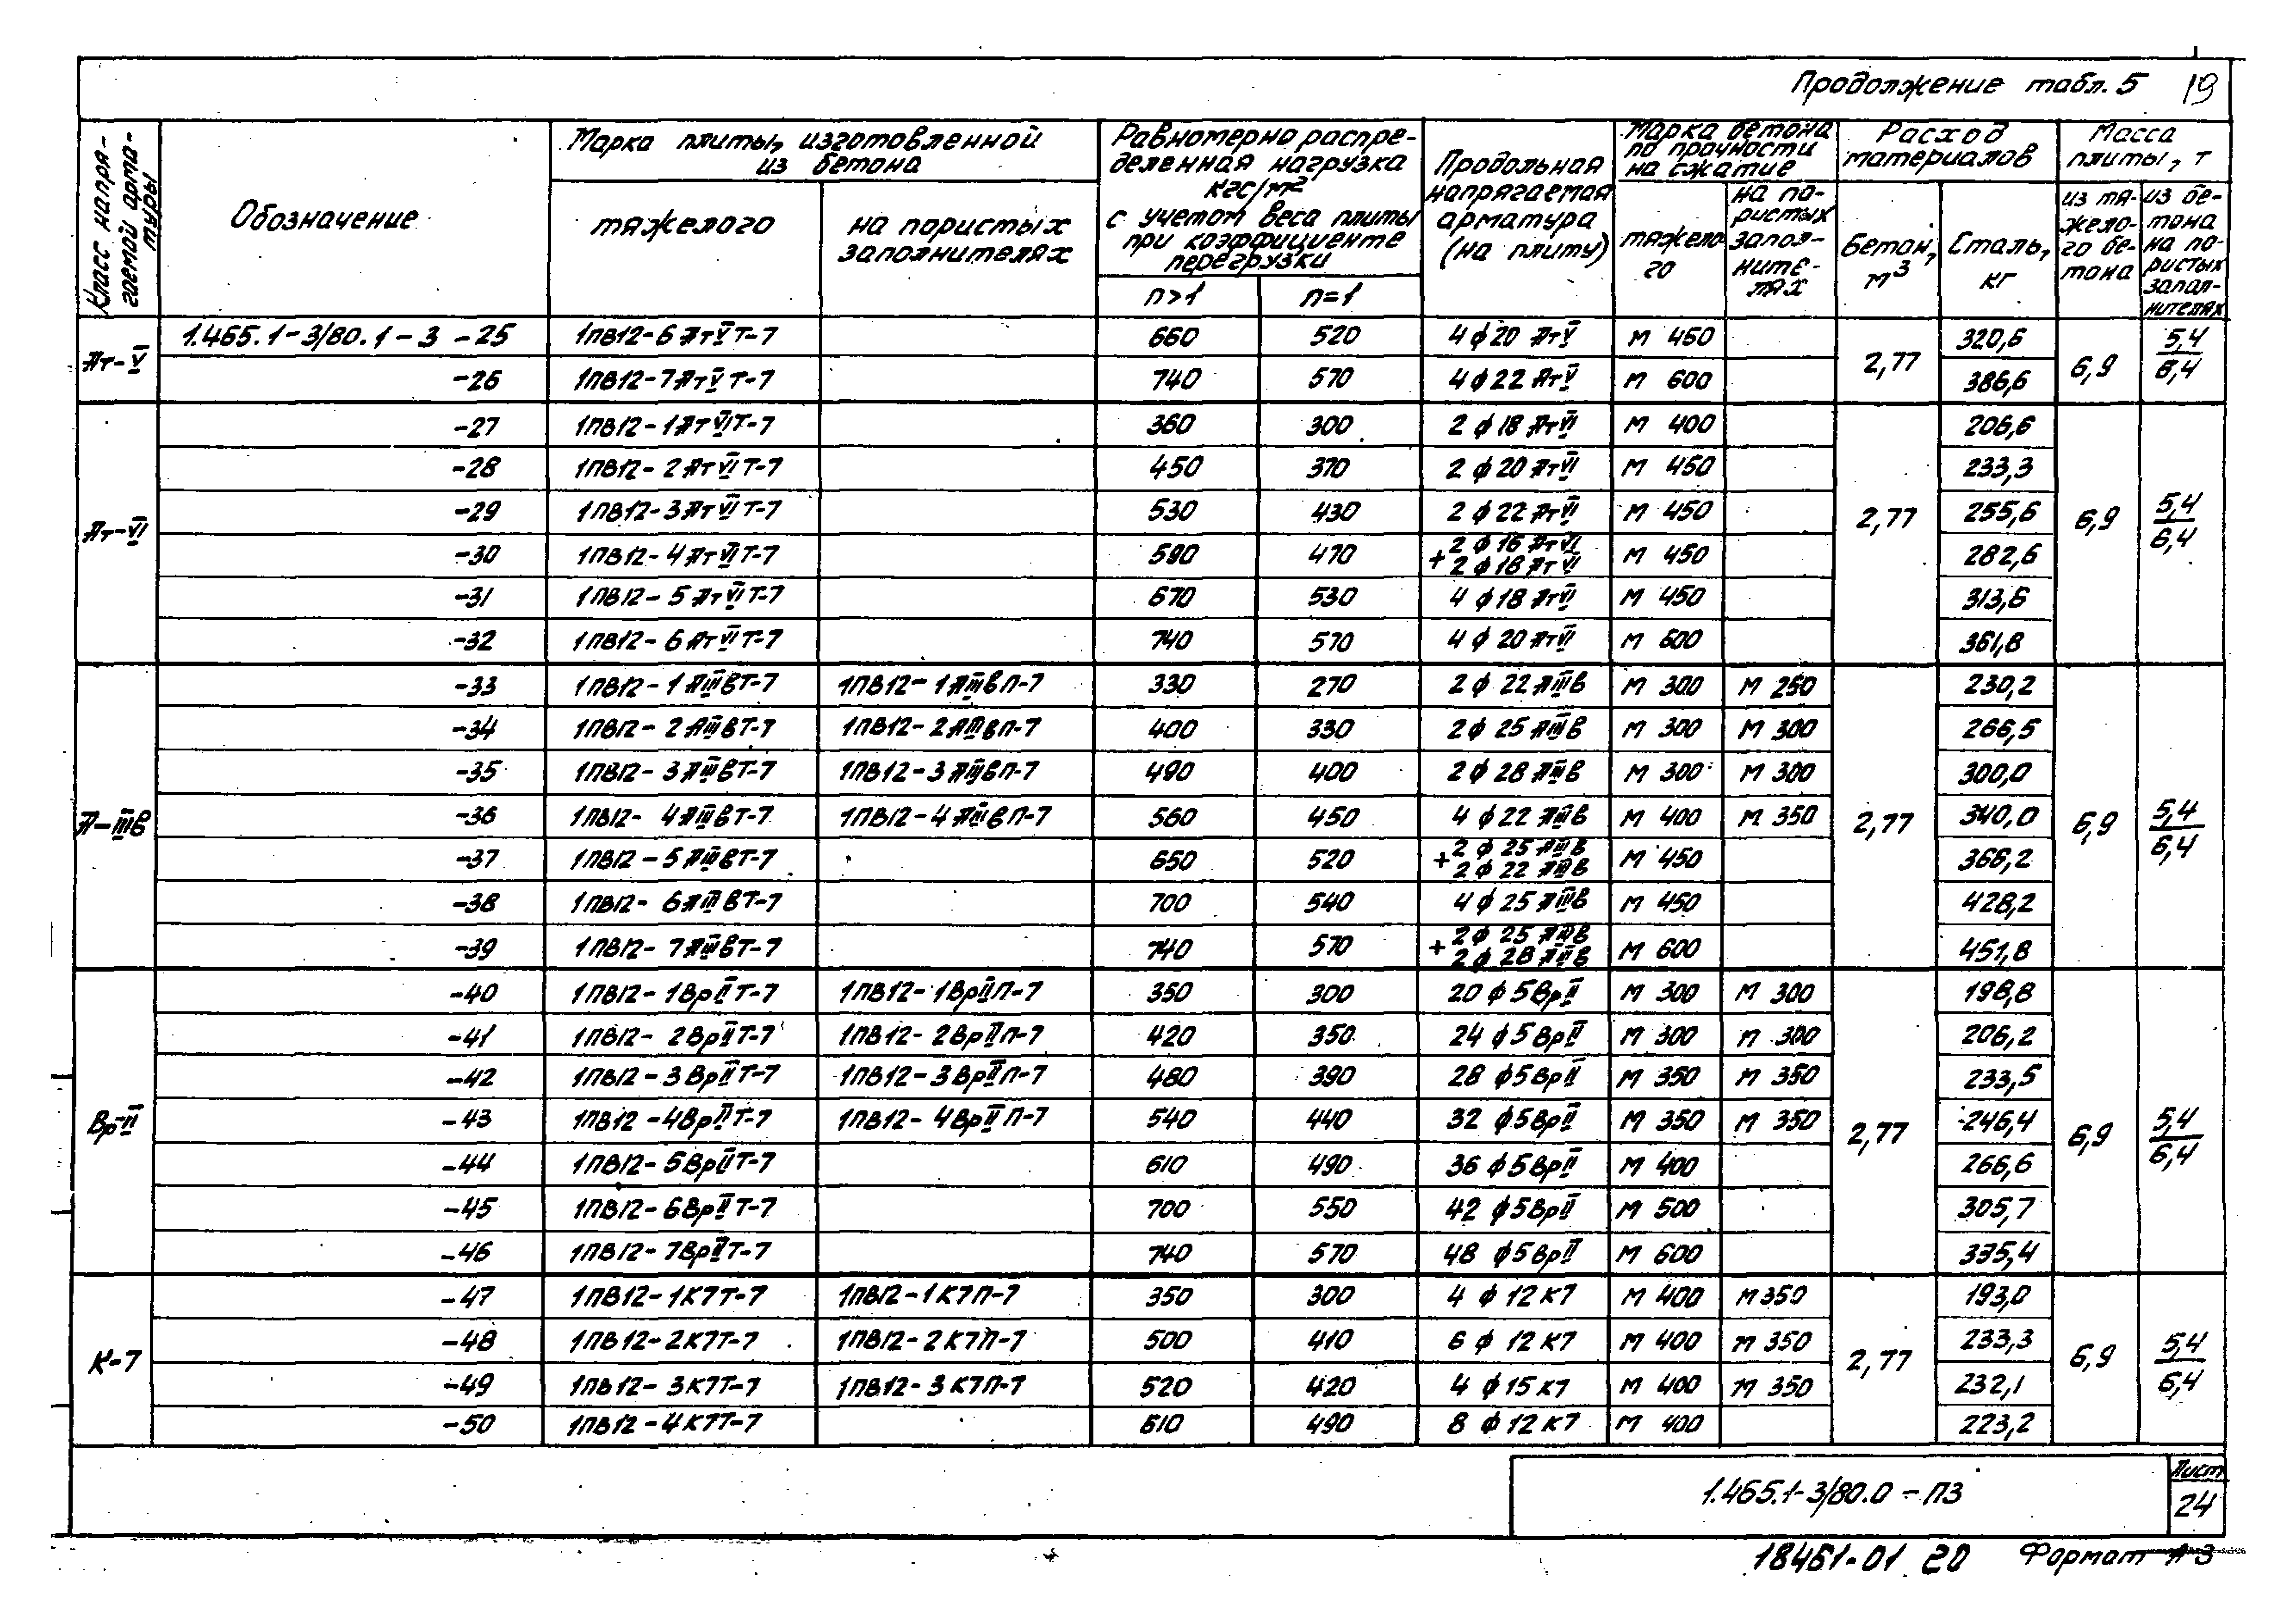 Продолжение табл. 5 19
Класс напря-
гаемой арма-
туры
Обозначение
Марка плиты, изготовленной
из бетона
тяжелого
на пористых
заполнителях
Равномерно распре-
деленная нагрузка
кгс/м²
с учетом веса плиты
при коэффициенте
перегрузки
n>1 n=1
Продольная
напрягаемая
арматура
(на плиту)
Марка бетона
по прочности
на сжатие
тяжело
го
на по-
ристых
запол-
ните-
лях
Расход
материалов
Бетон,
м3
Сталь,
кг
Масса
плиты, т
из тя-
жело-
го бе-
тона
из бе-
тона
на по-
ристых
запол-
нителях
Ат-V
1.465.1-3/80.1-3 -25 1ПВ12-6АтVТ-7 660 520 4ϕ20 АтV М 450 320,6
-26 1ПВ12-7АтVТ-7 740 570 4ϕ22 АтV М 600 386,6
2,77 6,9 5,4/6,4
Ат-VI
-27 1ПВ12-1АтVIТ-7 360 300 2ϕ18 АтVI М 400 206,6
-28 1ПВ12-2АтVIТ-7 450 370 2ϕ20 АтVI М 450 233,3
-29 1ПВ12-3АтVIТ-7 530 430 2ϕ22 АтVI М 450 255,6
-30 1ПВ12-4АтVIТ-7 590 470 2ϕ16 АтVI + 2ϕ18 АтVI М 450 282,6
-31 1ПВ12-5АтVIТ-7 670 530 4ϕ18 АтVI М 450 313,6
-32 1ПВ12-6АтVIТ-7 740 570 4ϕ20 АтVI М 600 361,8
2,77 6,9 5,4/6,4
А-IIIв
-33 1ПВ12-1АIIIвТ-7 1ПВ12-1АIIIвП-7 330 270 2ϕ22 АIIIв М 300 М 250 230,2
-34 1ПВ12-2АIIIвТ-7 1ПВ12-2АIIIвП-7 400 330 2ϕ25 АIIIв М 300 М 300 266,5
-35 1ПВ12-3АIIIвТ-7 1ПВ12-3АIIIвП-7 490 400 2ϕ28 АIIIв М 300 М 300 300,0
-36 1ПВ12-4АIIIвТ-7 1ПВ12-4АIIIвП-7 560 450 4ϕ22 АIIIв М 400 М 350 340,0
-37 1ПВ12-5АIIIвТ-7 650 520 2ϕ25 АIIIв + 2ϕ22 АIIIв М 450 366,2
-38 1ПВ12-6АIIIвТ-7 700 540 4ϕ25 АIIIв М 450 428,2
-39 1ПВ12-7АIIIвТ-7 740 570 2ϕ25 АIIIв + 2ϕ28 АIIIв М 600 451,8
2,77 6,9 5,4/6,4
Вр-II
-40 1ПВ12-1ВрIIТ-7 1ПВ12-1ВрIIП-7 350 300 20ϕ5ВрII М 300 М 300 198,8
-41 1ПВ12-2ВрIIТ-7 1ПВ12-2ВрIIП-7 420 350 24ϕ5ВрII М 300 М 300 206,2
-42 1ПВ12-3ВрIIТ-7 1ПВ12-3ВрIIП-7 480 390 28ϕ5ВрII М 350 М 350 233,5
-43 1ПВ12-4ВрIIТ-7 1ПВ12-4ВрIIП-7 540 440 32ϕ5ВрII М 350 М 350 246,4
-44 1ПВ12-5ВрIIТ-7 610 490 36ϕ5ВрII М 400 266,6
-45 1ПВ12-6ВрIIТ-7 700 550 42ϕ5ВрII М 500 305,7
-46 1ПВ12-7ВрIIТ-7 740 570 48ϕ5ВрII М 600 335,4
2,77 6,9 5,4/6,4
К-7
-47 1ПВ12-1К7Т-7 1ПВ12-1К7П-7 350 300 4ϕ12К7 М 400 М 350 193,0
-48 1ПВ12-2К7Т-7 1ПВ12-2К7П-7 500 410 6ϕ12К7 М 400 М 350 233,3
-49 1ПВ12-3К7Т-7 1ПВ12-3К7П-7 520 420 4ϕ15К7 М 400 М 350 232,1
-50 1ПВ12-4К7Т-7 610 490 8ϕ12К7 М 400 223,2
2,77 6,9 5,4/6,4
1.465.1-3/80.0-ПЗ
Лист
24
18461-01 20 Формат А3